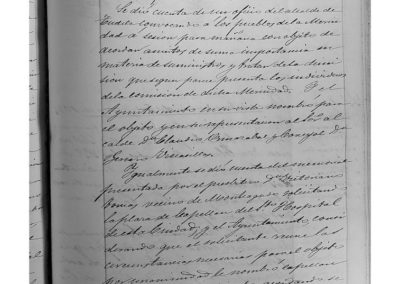 Se dió cuenta de un oficio del alcalde de
Tudela convocando a los pueblos de la Merin
dad a sesion para mañana con objeto de
acordar asuntos de suma importancia en
materia de suministros y tratar de la dimi
sion que segun parece presentan los individuos
de la comision de dicha Merindad. Y el
Ayuntamiento en su vista nombró para
el objeto y en su representacion al Sor al
calde Dn Claudio y Concejal Dn
Genaro
Igualmente se dió cuenta del memorial
presentado por el presbitero Dn Victoriano
vecino de solicitando
la plaza de Capellan del Sto Hospital
de esta Ciudad; y el Ayuntamiento consi
derando que el solicitante reune las
circunstancias necesarias para el objeto
por unanimidad le nombró capellan
se